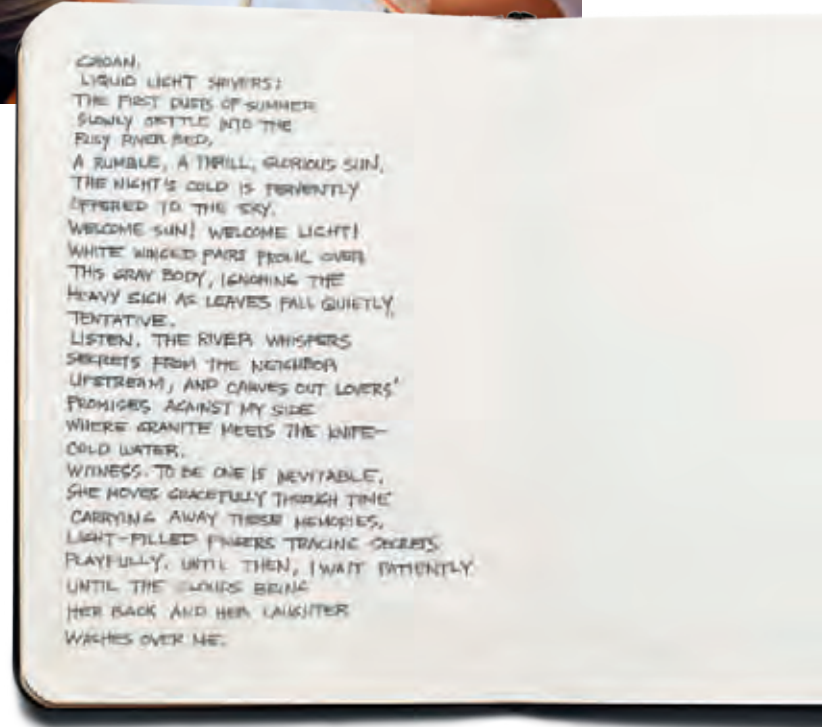 GROAN.
LIQUID LIGHT SHIVERS;
THE FIRST DUSTS OF SUMMER
SLOWLY SETTLE INTO THE
RIVER BED,
A RUMBLE, A THRILL, GLORIOUS SUN,
THE NIGHT'S COLD IS FERVENTLY
OFFERED TO THE SKY.
WELCOME SUN! WELCOME LIGHT!
WHITE WINGED PAIRS FROLIC OVER
THIS GRAY BODY, IGNORING THE
HEAVY SIGH AS LEAVES FALL QUIETLY,
TENTATIVE.
LISTEN. THE RIVER WHISPERS
SECRETS FROM THE NEIGHBOR
UPSTREAM, AND CARVES OUT LOVERS'
PROMISES AGAINST MY SIDE
WHERE GRANITE MEETS THE KNIFE-
COLD WATER.
WITNESS. TO BE ONE IS INEVITABLE,
SHE MOVES GRACEFULLY THROUGH TIME
CARRYING AWAY THESE MEMORIES,
LIGHT-FILLED FINGERS TRACING SECRETS
PLAYFULLY. UNTIL THEN, I WAIT PATIENTLY
UNTIL THE CLOUDS BRING
HER BACK AND HER LAUGHTER
WASHES OVER ME.